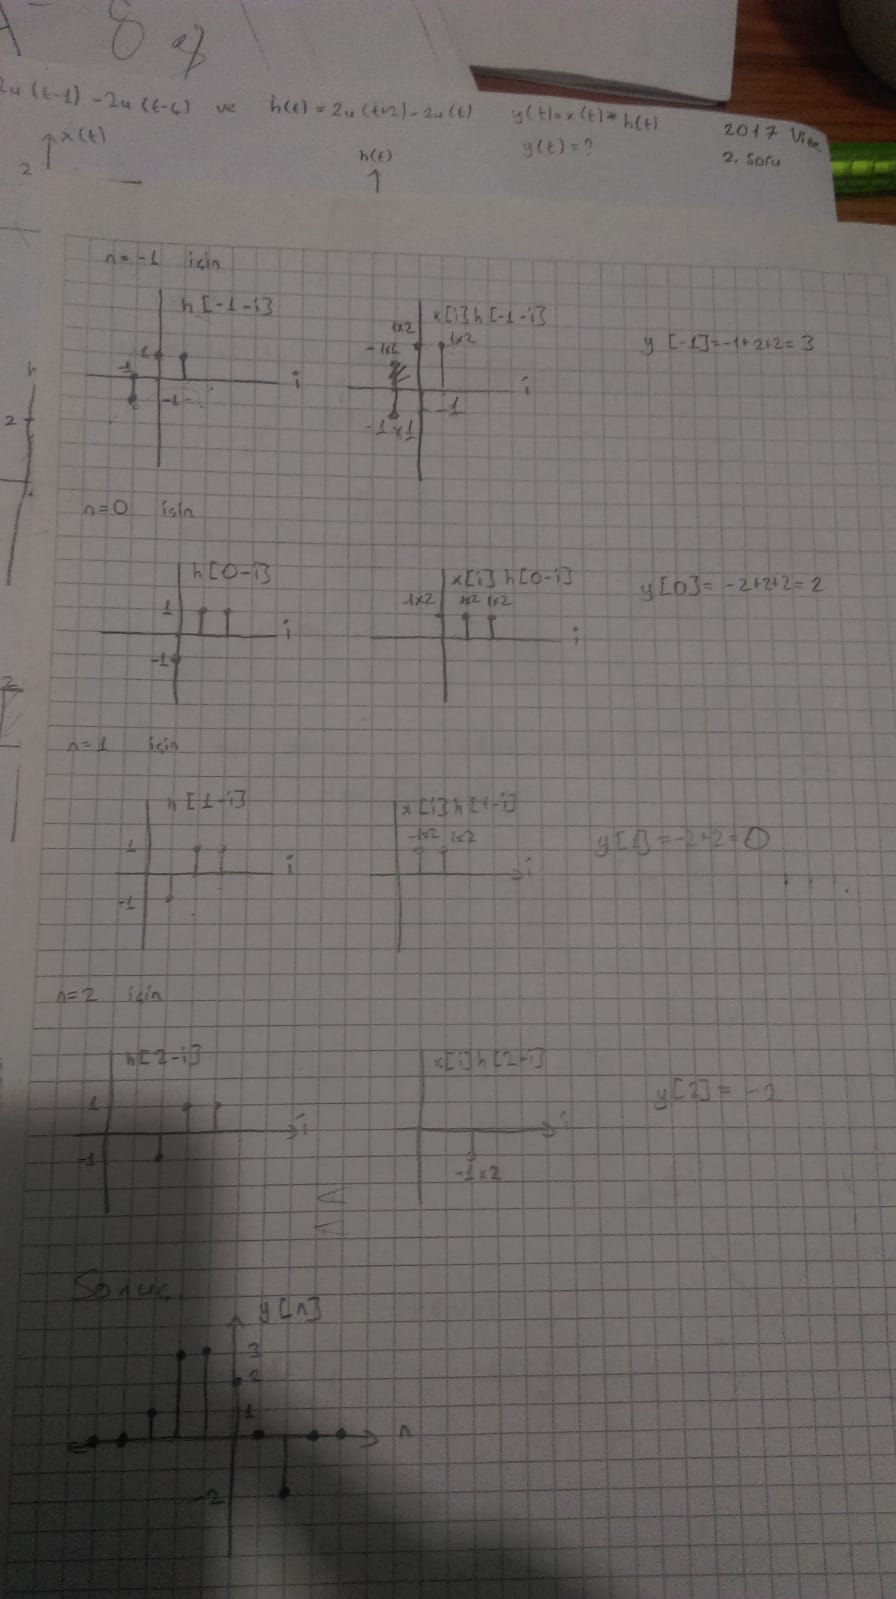 8
2u(t-1) - 2u(t-6) ve h(t) = 2u(t+2) - 2u(t) y(t) = x(t) * h(t)
y(t) = ?
2017 Vize
2. Soru
x(t)
2
h(t)
n=-1 için
h[-1-i]
1
-1
-1
i
x[i]h[-1-i]
1x2
1x2
-1x1
-1
i
y[-1]=-1+2+2=3
2
n=0 için
h[0-i]
1
-1
i
x[i]h[0-i]
-1x2 1x2 1x2
i
y[0]=-2+2+2=2
2
n=1 için
h[1-i]
1
-1
i
x[i]h[1-i]
-1x2 1x2
i
y[1]=-2+2=0
n=2 için
h[2-i]
1
-1
i
x[i]h[2-i]
-1x2
i
y[2]=-2
Sonuç
y[n]
3
2
1
n
-2